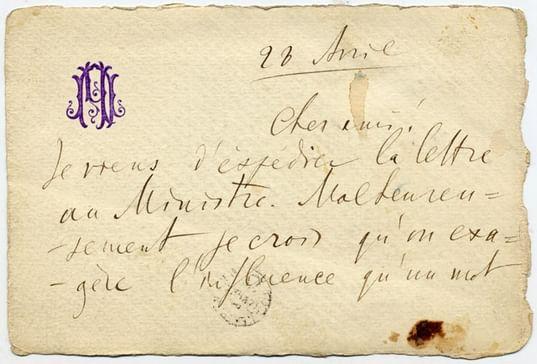 23 Avril
Cher ami!
Je viens d'expédier la lettre
au Ministre. Malheureu=
=sement je crois qu'on exa=
=gère l'influence qu'un mot